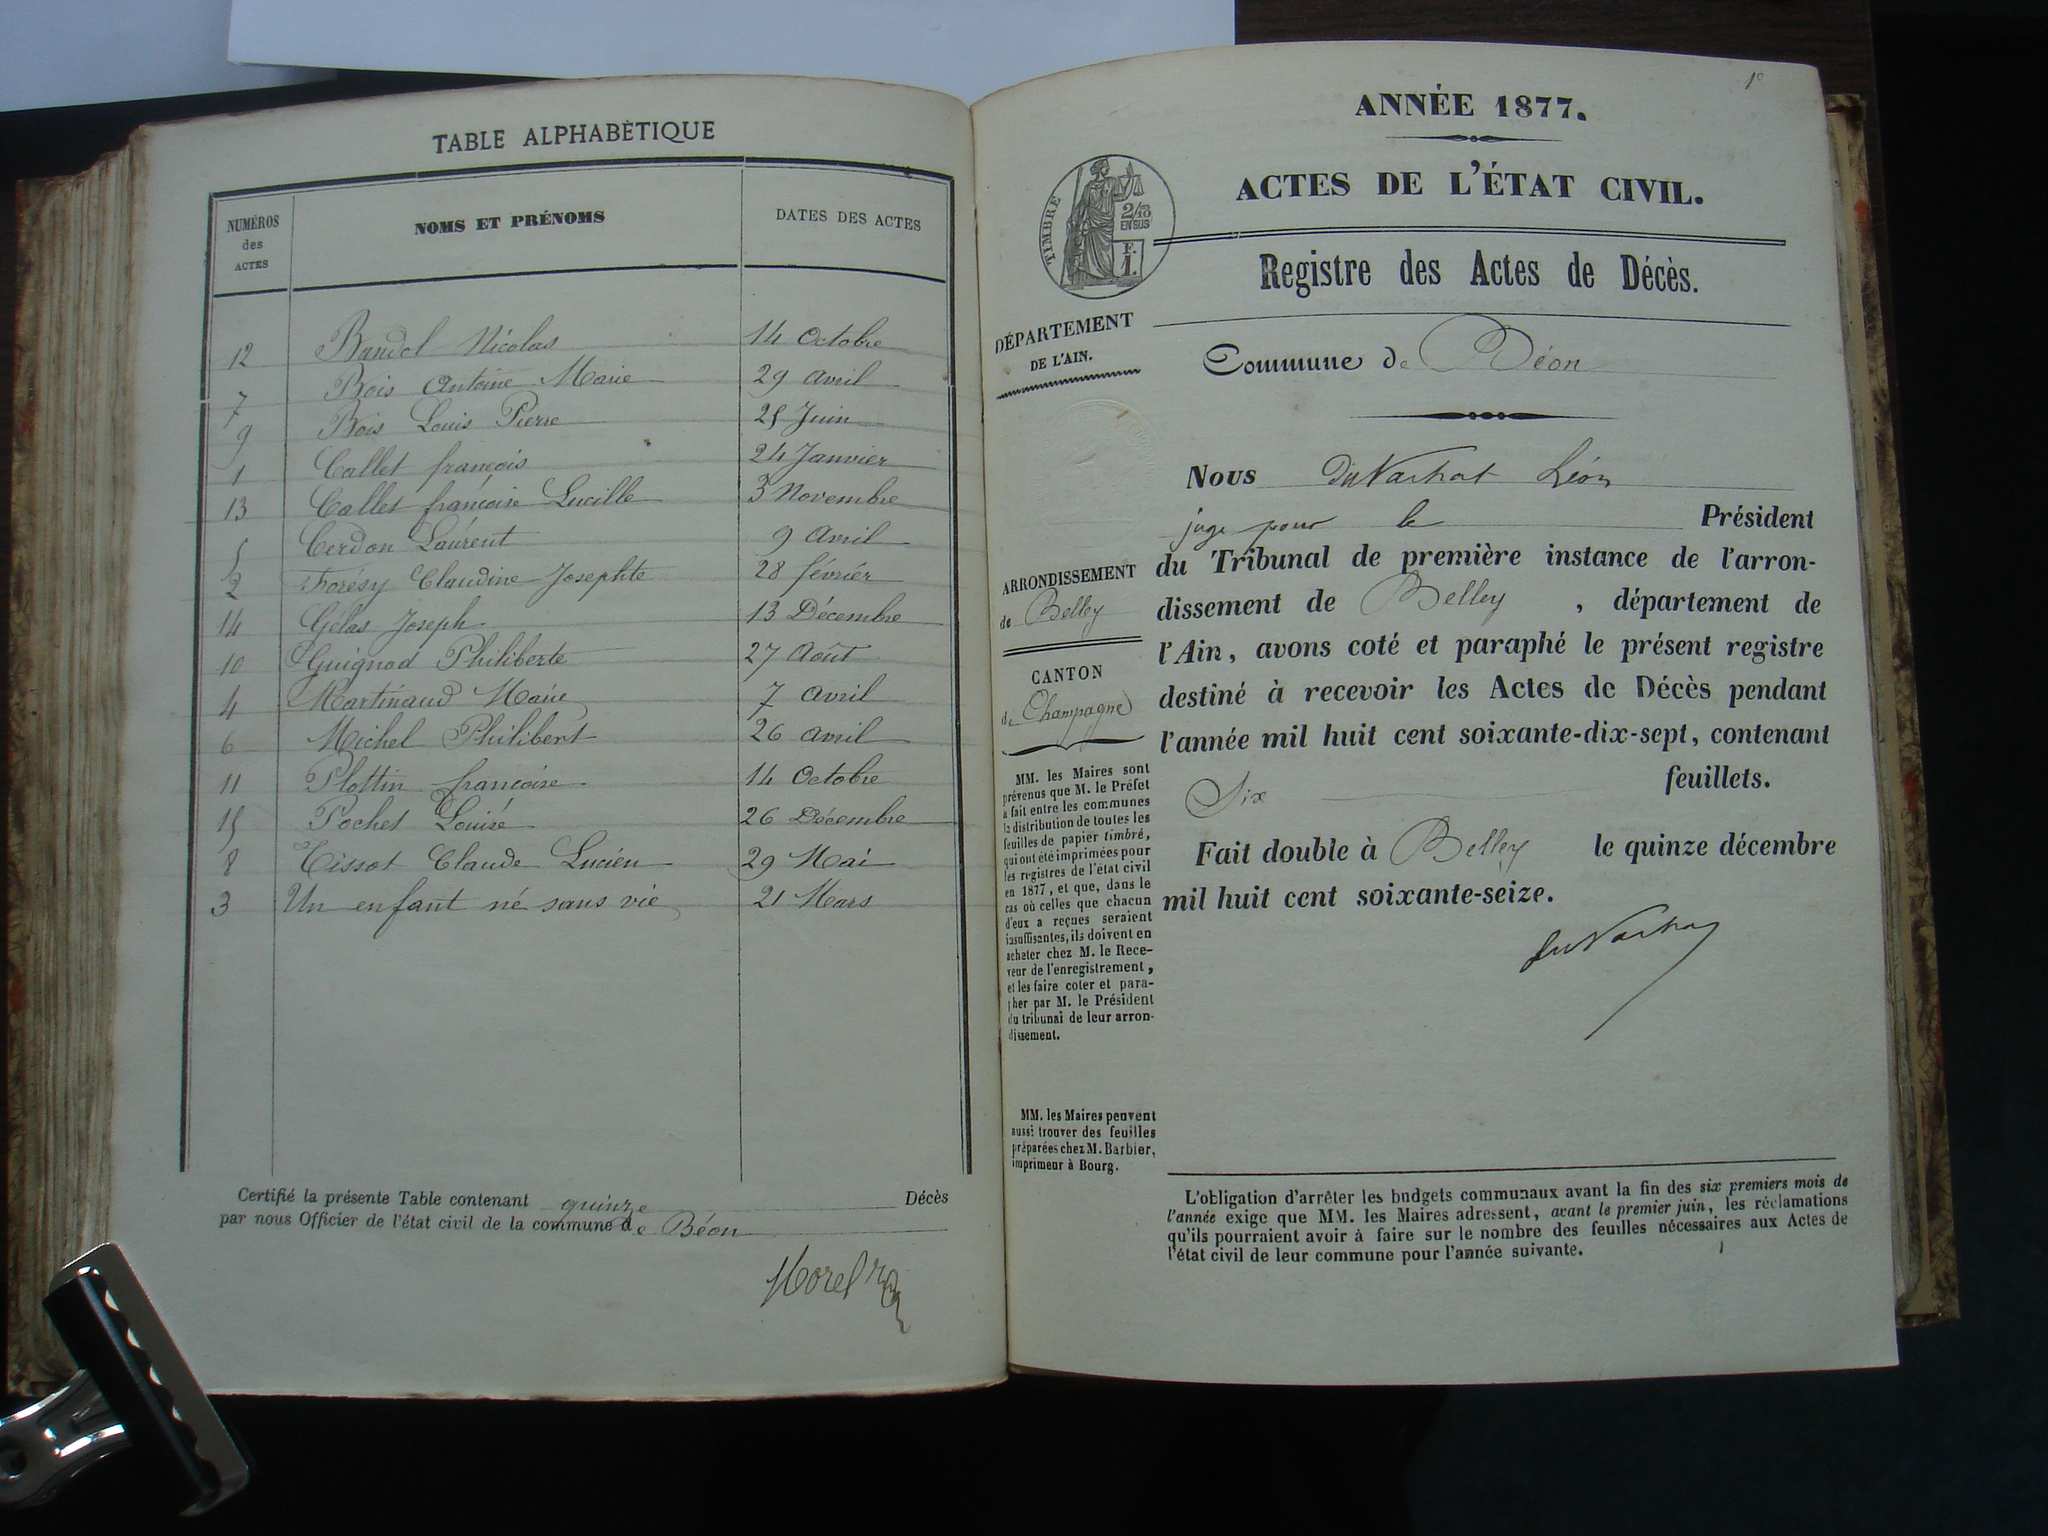 TABLE ALPHABÈTIQUE
NUMÉROS des ACTES
NOMS ET PRÉNOMS
DATES DES ACTES
12 Bandel Nicolas 14 Octobre
7 Bois Antoine Marie 29 avril
9 Bois Louis Pierre 25 Juin
1 Callet françois 24 Janvier
13 Callet françoise Lucille 3 Novembre
5 Cerdon Laurent 9 avril
2 Forésy Claudine Josephte 28 février
14 Gélas Joseph 13 Décembre
10 Guignod Philiberte 27 Août
4 Martinaud Marie 7 avril
6 Michel Philibert 26 avril
11 Plottin françoise 14 Octobre
15 Pochet Louise 26 Décembre
8 Tissot Claude Lucien 29 Mai
3 Un enfant né sans vie 21 Mars
Certifié la présente Table contenant quinze Décès
par nous Officier de l'état civil de la commune de Béon
Morel
1e
ANNÉE 1877.
ACTES DE L'ÉTAT CIVIL.
TIMBRE
2/10
EN SUS
F.
1.
Registre des Actes de Décès.
DÉPARTEMENT
DE L'AIN.
Commune de Béon
Nous DuNachat Léon
juge pour le Président
du Tribunal de première instance de l'arron-
dissement de Belley, département de
l'Ain, avons coté et paraphé le présent registre
destiné à recevoir les Actes de Décès pendant
l'année mil huit cent soixante-dix-sept, contenant
Six feuillets.
Fait double à Belley le quinze décembre
mil huit cent soixante-seize.
ARRONDISSEMENT
de Belley
CANTON
de Champagne
MM. les Maires sont
prévenus que M. le Préfet
a fait entre les communes
la distribution de toutes les
feuilles de papier timbré,
qui ont été imprimées pour
les registres de l'état civil
en 1877, et que, dans le
cas où celles que chacun
d'eux a reçues seraient
insuffisantes, ils doivent en
acheter chez M. le Rece-
veur de l'enregistrement,
et les faire coter et para-
pher par M. le Président
du tribunal de leur arron-
dissement.
MM. les Maires peuvent
aussi trouver des feuilles
préparées chez M. Barbier,
imprimeur à Bourg.
L'obligation d'arrêter les budgets communaux avant la fin des six premiers mois de
l'année exige que MM. les Maires adressent, avant le premier juin, les réclamations
qu'ils pourraient avoir à faire sur le nombre des feuilles nécessaires aux Actes de
l'état civil de leur commune pour l'année suivante.